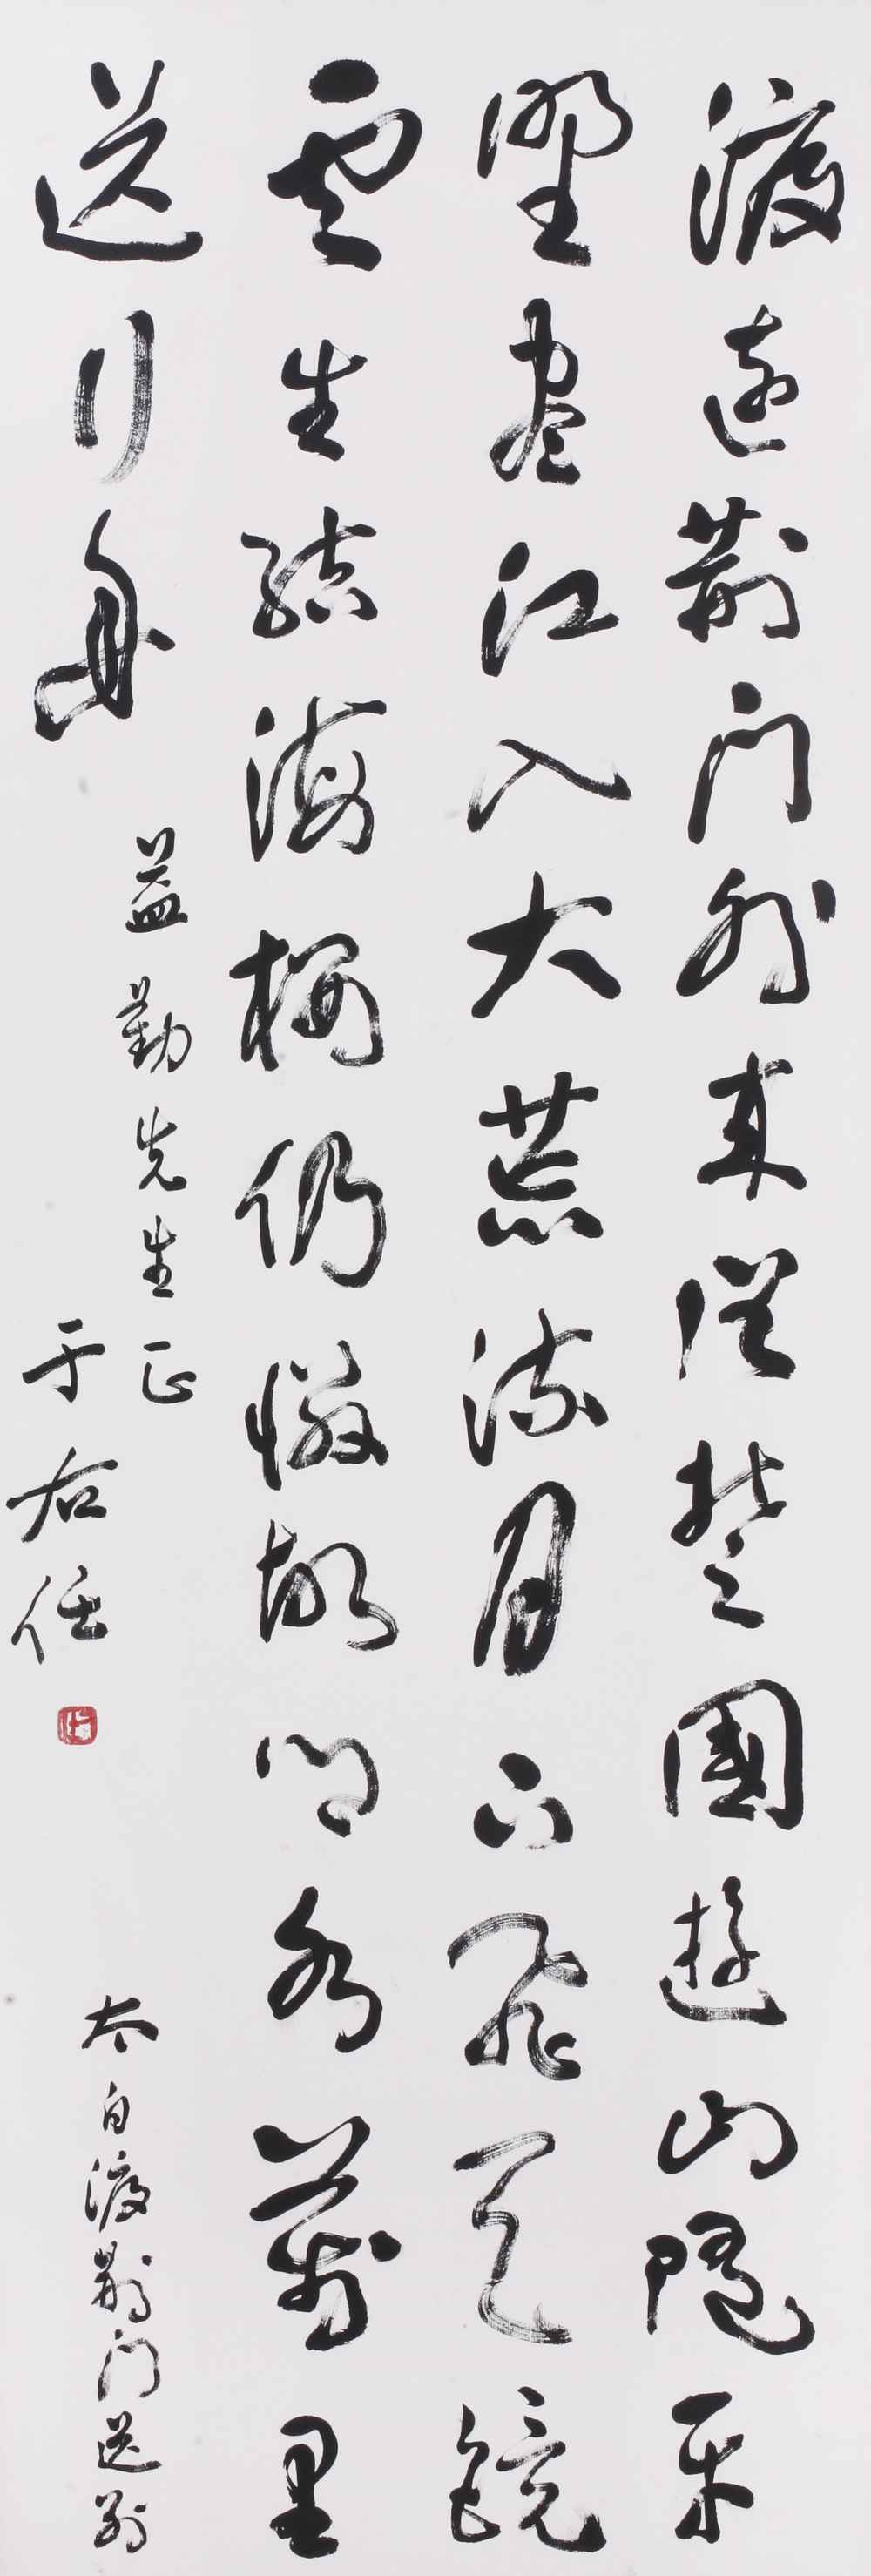 渡遠荊門外來從楚國遊山隨平
野盡江入大荒流月下飛天鏡
雲生結海樓仍憐故鄉水萬里
送行舟
益勤先生正
于右任
太白渡荊門送別